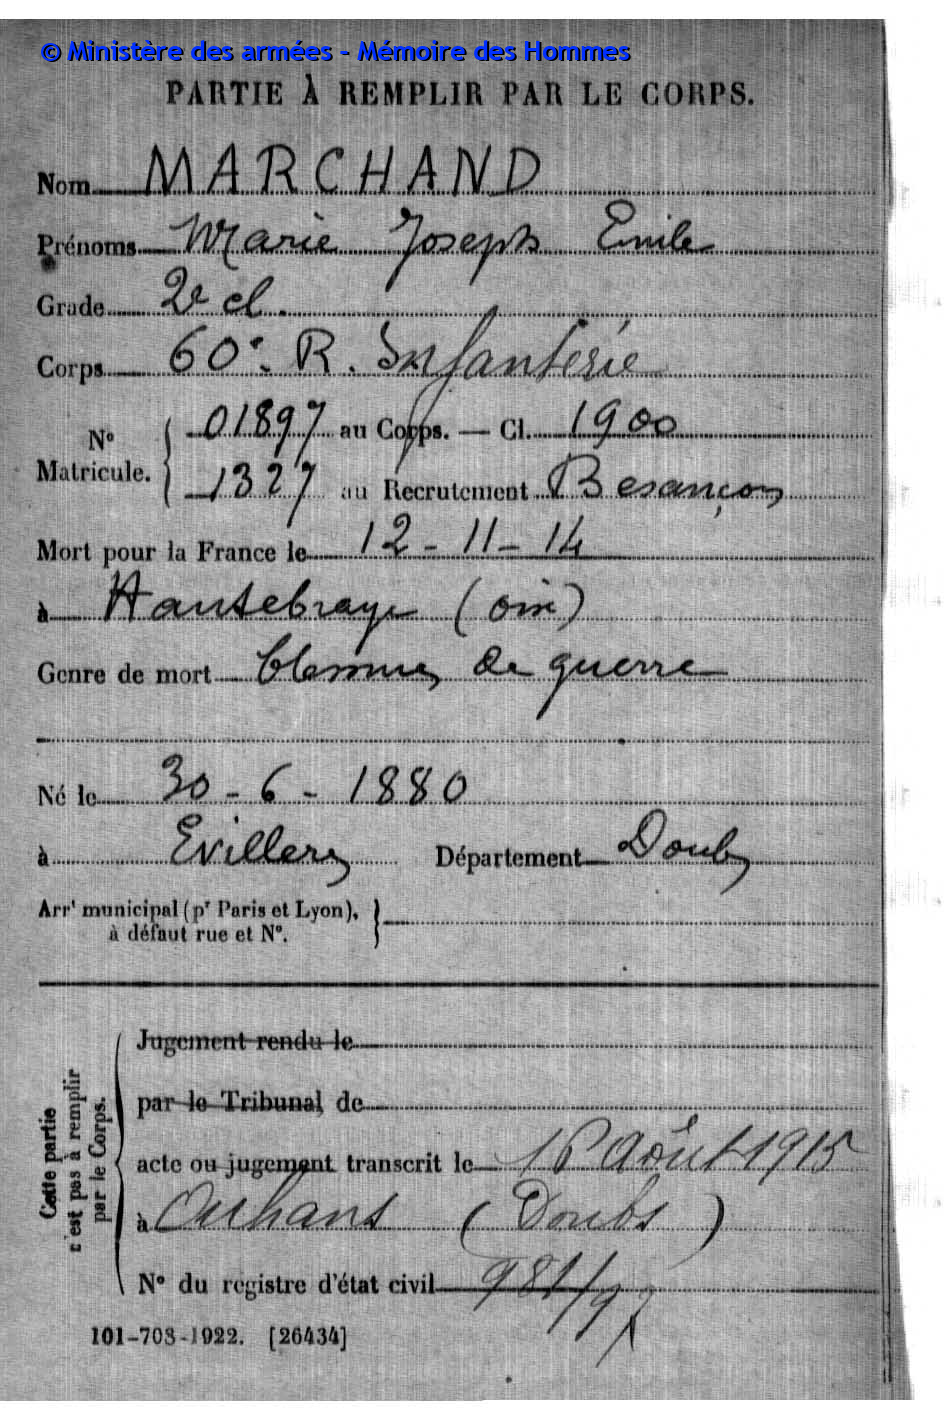 © Ministère des armées - Mémoire des Hommes
PARTIE À REMPLIR PAR LE CORPS.
Nom MARCHAND
Prénoms Marie Joseph Emile
Grade 2e cl.
Corps 60e R. Infanterie
N° Matricule. 01897 au Corps. — Cl. 1900
1327 au Recrutement Besançon
Mort pour la France le 12-11-14
à Hautebraye (Oise)
Genre de mort blessures de guerre
Né le 30-6-1880
à Evillers Département Doubs
Arrt municipal (pr Paris et Lyon),
à défaut rue et N°.
Cette partie
n'est pas à remplir
par le Corps.
Jugement rendu le
par le Tribunal de
acte ou jugement transcrit le 16 Août 1915
à Ouhans (Doubs)
N° du registre d'état civil 981/97
101-708-1922. [26434]